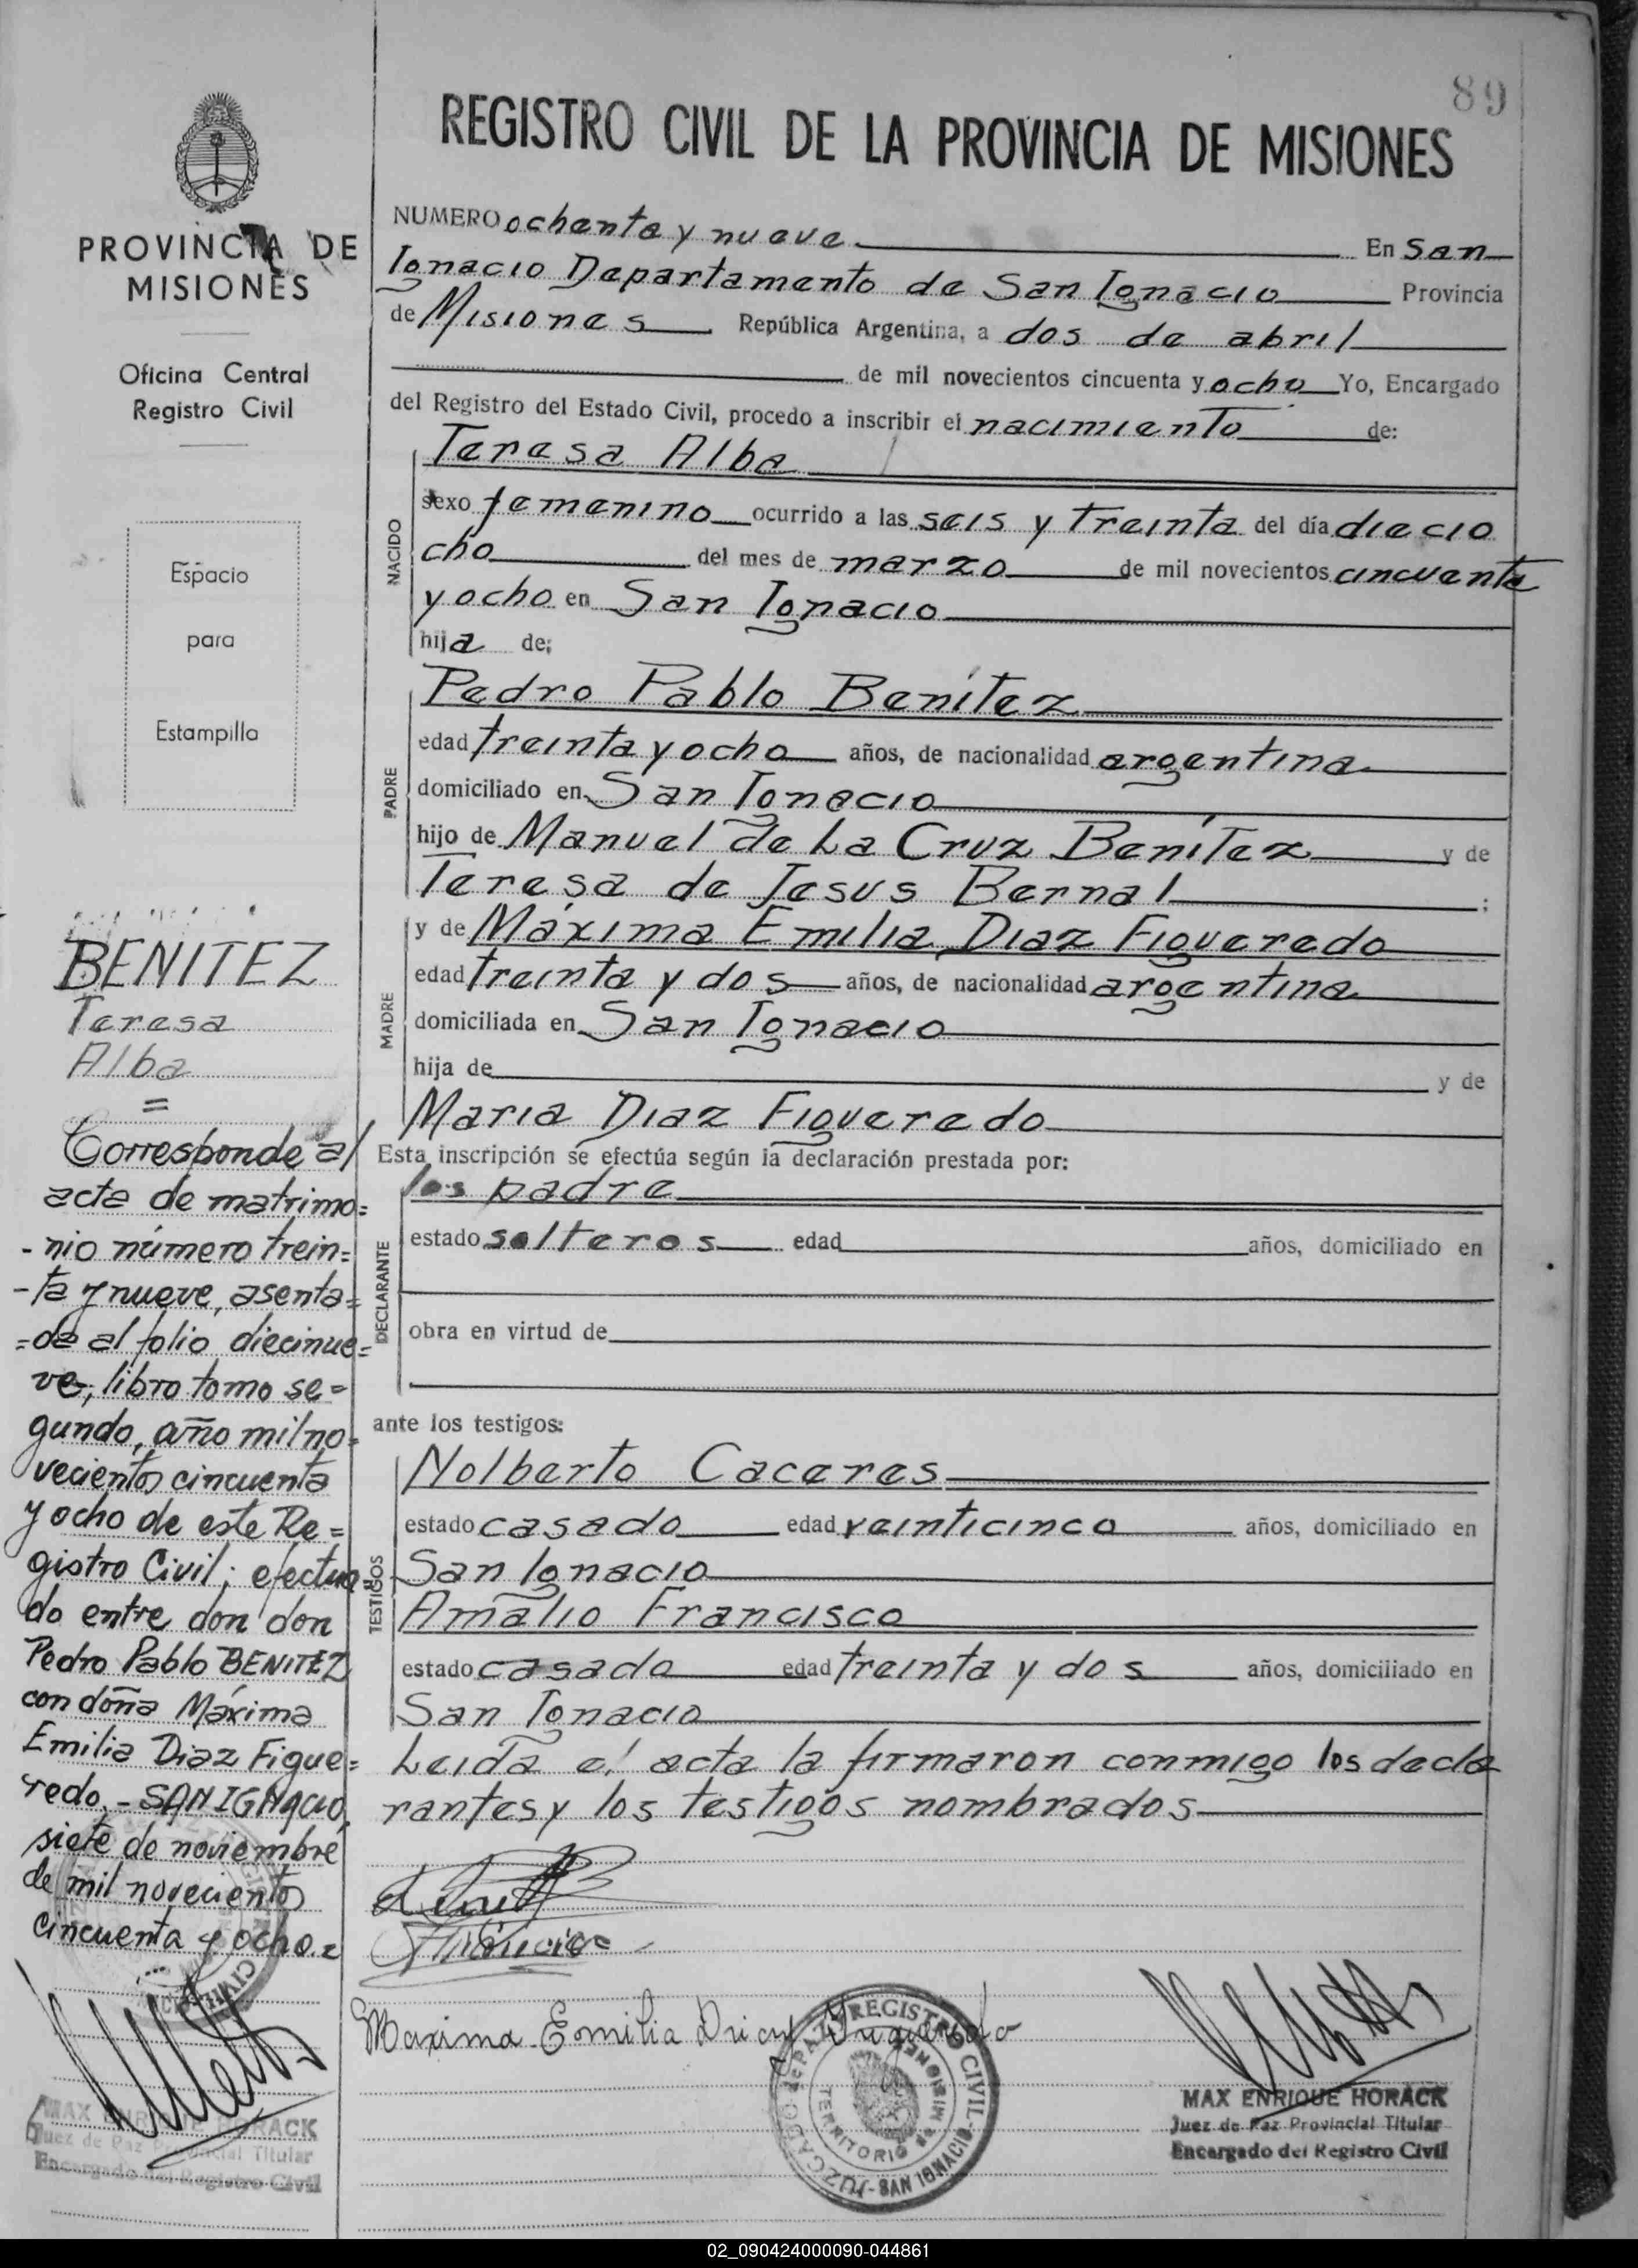 89
REGISTRO CIVIL DE LA PROVINCIA DE MISIONES
PROVINCIA DE
MISIONES
Oficina Central
Registro Civil
Espacio
para
Estampilla
BENITEZ
Teresa
Alba
=
Corresponde al
acta de matrimo=
-nio número trein=
-ta y nueve, asenta=
=da al folio diecinue=
ve, libro tomo se=
gundo, año mil no=
vecientos cincuenta
y ocho de este Re=
gistro Civil; efectua=
do entre don don
Pedro Pablo BENITEZ
con doña Máxima
Emilia Diaz Figue=
redo.- SAN IGNACIO,
siete de noviembre
de mil novecientos
cincuenta y ocho.=
MAX ENRIQUE HORACK
Juez de Paz Provincial Titular
Encargado del Registro Civil
NUMERO ochenta y nueve En San
Ignacio Departamento de San Ignacio Provincia
de Misiones República Argentina, a dos de abril
de mil novecientos cincuenta y ocho Yo, Encargado
del Registro del Estado Civil, procedo a inscribir el nacimiento de:
Teresa Alba
NACIDO
sexo femenino ocurrido a las seis y treinta del día diecio
cho del mes de marzo de mil novecientos cincuenta
y ocho en San Ignacio
hija de;
Pedro Pablo Benítez
PADRE
edad treinta y ocho años, de nacionalidad argentina
domiciliado en San Ignacio
hijo de Manuel de La Cruz Benítez y de
Teresa de Jesus Bernal ;
y de Máxima Emilia Diaz Figueredo
MADRE
edad treinta y dos años, de nacionalidad argentina
domiciliada en San Ignacio
hija de y de
Maria Diaz Figueredo
Esta inscripción se efectúa según la declaración prestada por:
los padre
DECLARANTE
estado solteros edad años, domiciliado en
obra en virtud de
ante los testigos:
Nolberto Caceres
TESTIGOS
estado casado edad veinticinco años, domiciliado en
San Ignacio
Amalio Francisco
estado casado edad treinta y dos años, domiciliado en
San Ignacio
Leida el acta la firmaron conmigo los decla
rantes y los testigos nombrados
Maxima Emilia Diaz Figueredo
JUZGADO de PAZ y REGISTRO CIVIL
TERRITORIO de MISIONES
-SAN IGNACIO-
MAX ENRIQUE HORACK
Juez de Paz Provincial Titular
Encargado del Registro Civil
02_090424000090-044861